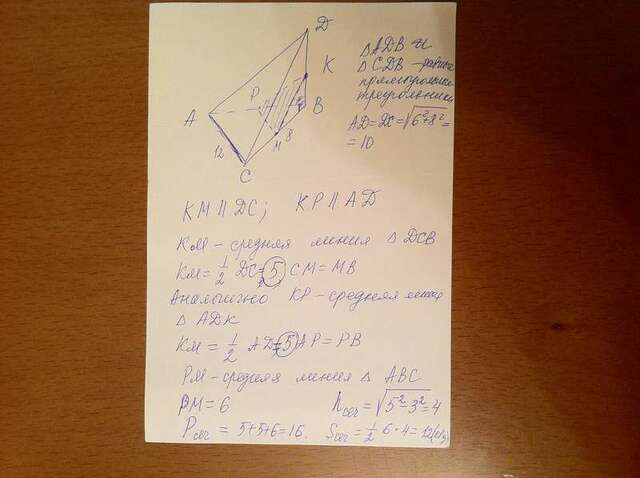 D
K
P
B
A
8
M
12
C
△ ADB и
△ CDB - равные
прямоугольные
треугольники
AD = DC = √6²+8² =
= 10
KM ∥ DC; KP ∥ AD
KM - средняя линия △ DCB
KM = 1/2 DC = 5 CM = MB
Аналогично KP - средняя линия
△ ADK
KM = 1/2 AD = 5 AP = PB
PM - средняя линия △ ABC
PM = 6 hсеч = √5²-3² = 4
Pсеч = 5+5+6=16. Sсеч = 1/2 6·4 = 12